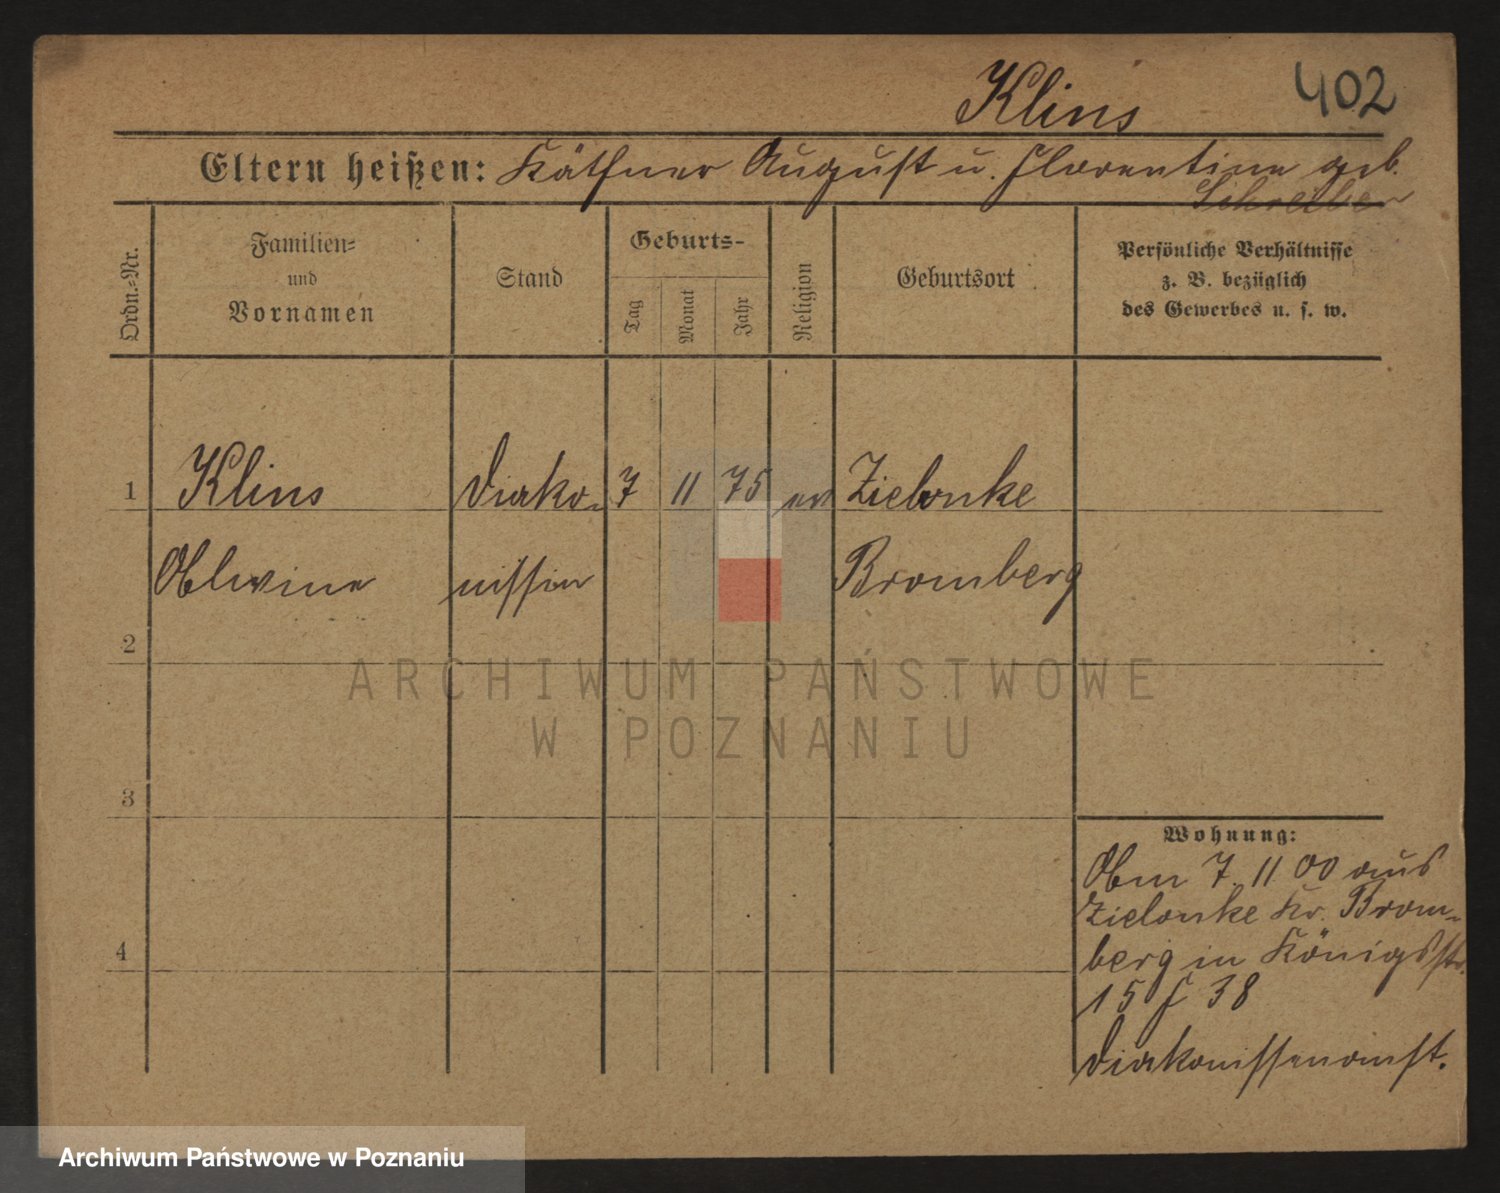 Klins 402
Eltern heißen: Käthner August u. Florentine geb.
Schreiber
Ordn.-Nr. Familien- und Vornamen Stand Geburts- Tag Monat Jahr Religion Geburtsort Persönliche Verhältnisse z. B. bezüglich des Gewerbes u. s. w.
1 Klins Diako- 7 11 75 ev Zielonke
Alwine nissin Bromberg
2
3
4
Wohnung:
Am 7. 11 00 aus
Zielonke Kr. Brom-
berg in Königsstr.
15 f 38
Diakonissenanst.
ARCHIWUM PAŃSTWOWE
W POZNANIU
Archiwum Państwowe w Poznaniu